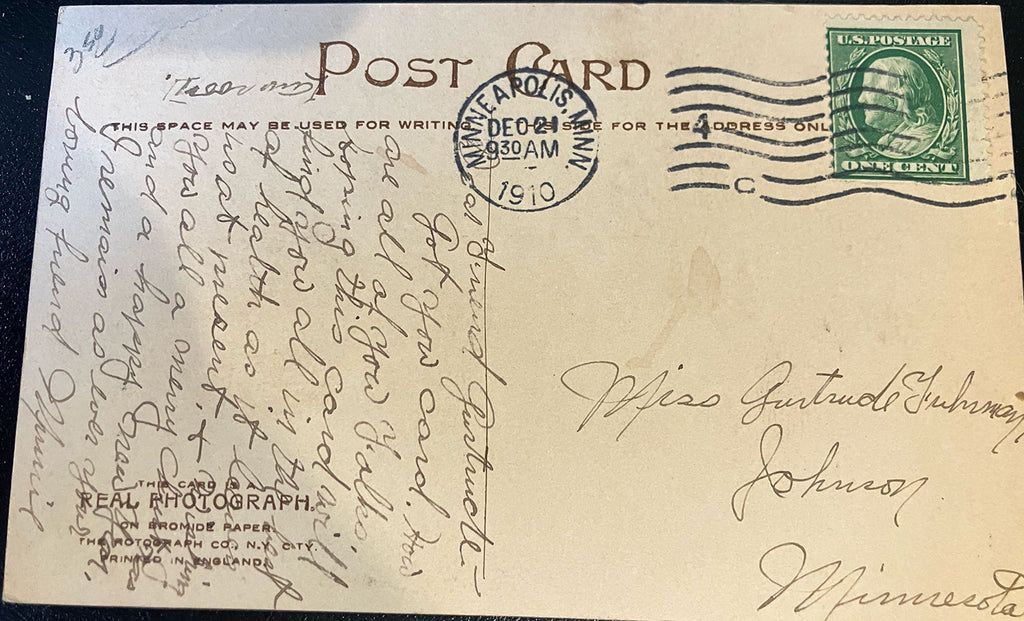 3 50
POST CARD
THIS SPACE MAY BE USED FOR WRITING SIDE FOR THE ADDRESS ONL
MINNEAPOLIS, MINN.
DEC 21
9 30 AM
1910
4
C
U.S. POSTAGE
ONE CENT
Friend Gertrude—
Got your card. How
are all of you Folks.
hoping this card will
find you all in the best
of health as it leaves
us at present, & Wishing
you all a merry Christmas
and a happy New Year,
I remain as ever your
loving friend
Miss Gertrude Fuhrman
Johnson
Minnesota
THIS CARD IS A
REAL PHOTOGRAPH.
ON BROMIDE PAPER.
THE ROTOGRAPH CO., N.Y. CITY.
PRINTED IN ENGLAND.